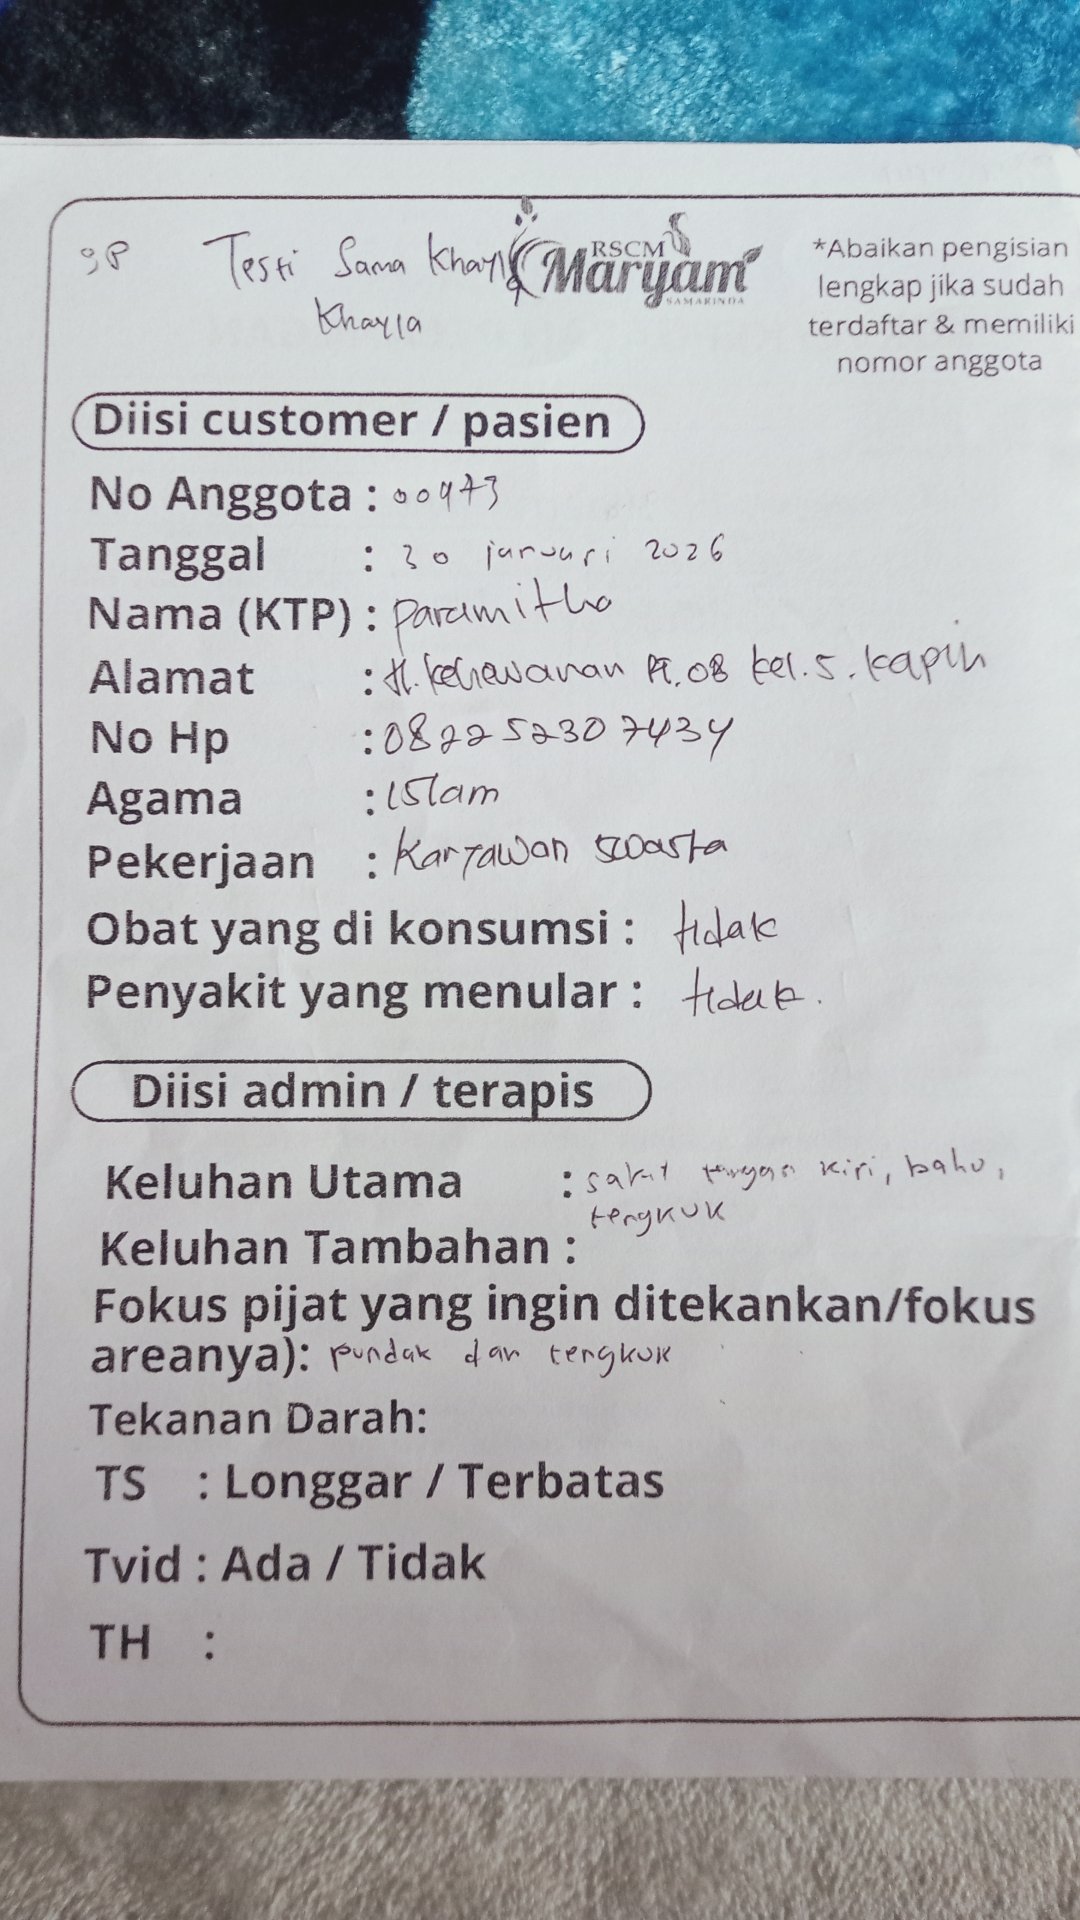 ;P Testi Sama Khayla
Khayla
RSCM
Maryam
SAMARINDA
*Abaikan pengisian
lengkap jika sudah
terdaftar & memiliki
nomor anggota
Diisi customer / pasien
No Anggota : 00973
Tanggal : 30 januari 2026
Nama (KTP) : Paramitha
Alamat : Jl. Kehewanan Rt.08 kel.S.Kapih
No Hp : 082252307434
Agama : Islam
Pekerjaan : Karyawan swasta
Obat yang di konsumsi : tidak
Penyakit yang menular : tidak.
Diisi admin / terapis
Keluhan Utama : sakit tangan kiri, bahu,
tengkuk
Keluhan Tambahan :
Fokus pijat yang ingin ditekankan/fokus
areanya): pundak dan tengkuk
Tekanan Darah:
TS : Longgar / Terbatas
Tvid : Ada / Tidak
TH :